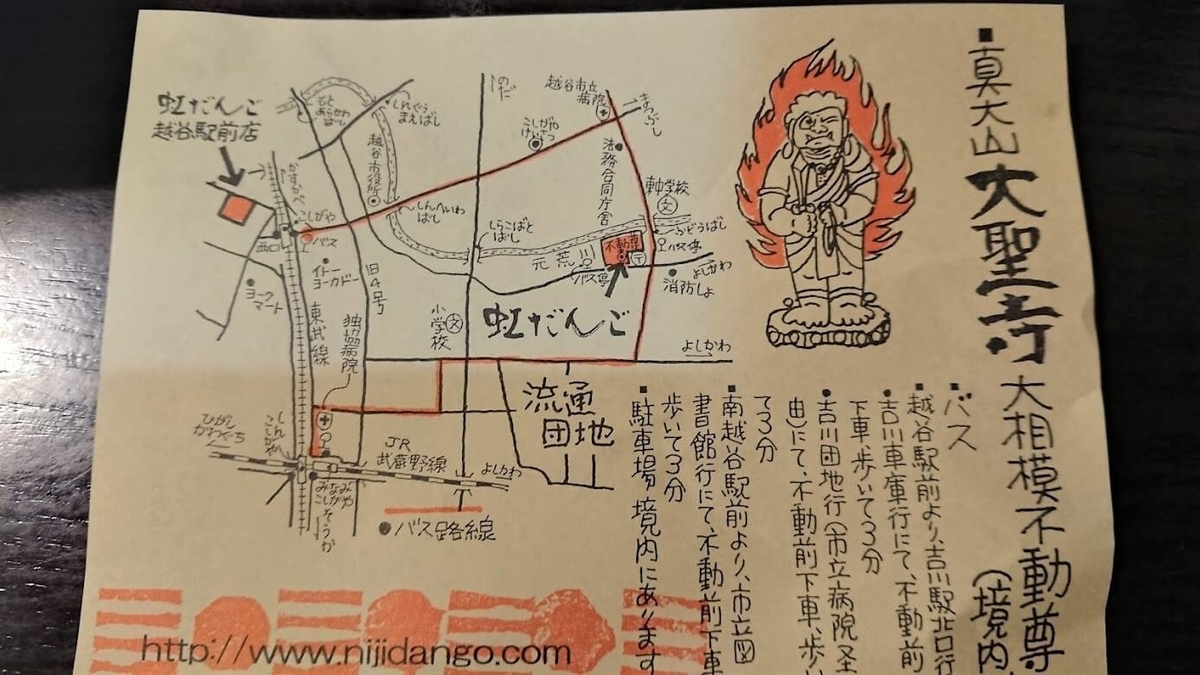 ■真大山大聖寺大相模不動尊
(境内
■バス
■越谷駅前より、吉川駅北口行
吉川車庫行にて、不動前
下車歩いて3分
●吉川団地行(市立病院圣
由)にて、不動前下車、歩い
て3分
■南越谷駅前より、市立図
書館行にて、不動前下車
歩いて3分
■駐車場 境内にあります
虹だんご
越谷駅前店
もとあらかわばし
しんぐうまえばし
のだ
越谷市立病院
まつぶし
こしがやけいさつ
法務合同庁舎
越谷市役所
かすかべ
こしがや
バス
西口
しんへいわばし
しらこばとばし
東中学校
文
ふどうばし
バス停
不動尊
元荒川
バス停
よしかわ
消防しょ
イトーヨーカドー
ヨークマート
旧4号
東武線
独協病院
小学校
文
虹だんご
よしかわ
流通団地
ひがしかわぐち
しんこしがや
JR
武蔵野線
よしかわ
みなみこしがや
そうか
●バス路線
http://www.nijidango.com